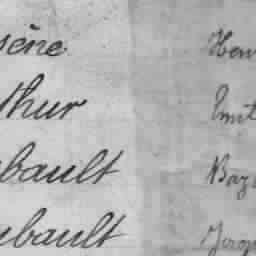 sène Hen
thur Emil
bault Baz
ubault Jacq